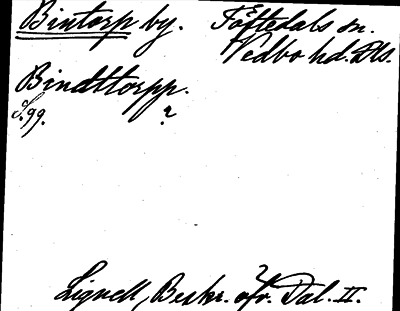 Bintorp by. Töftedals sn.
Vedbo hd. Dls.
Bindttorpp.
S. 99. ?
Lignell, Beskr. öfv. Dal. II.